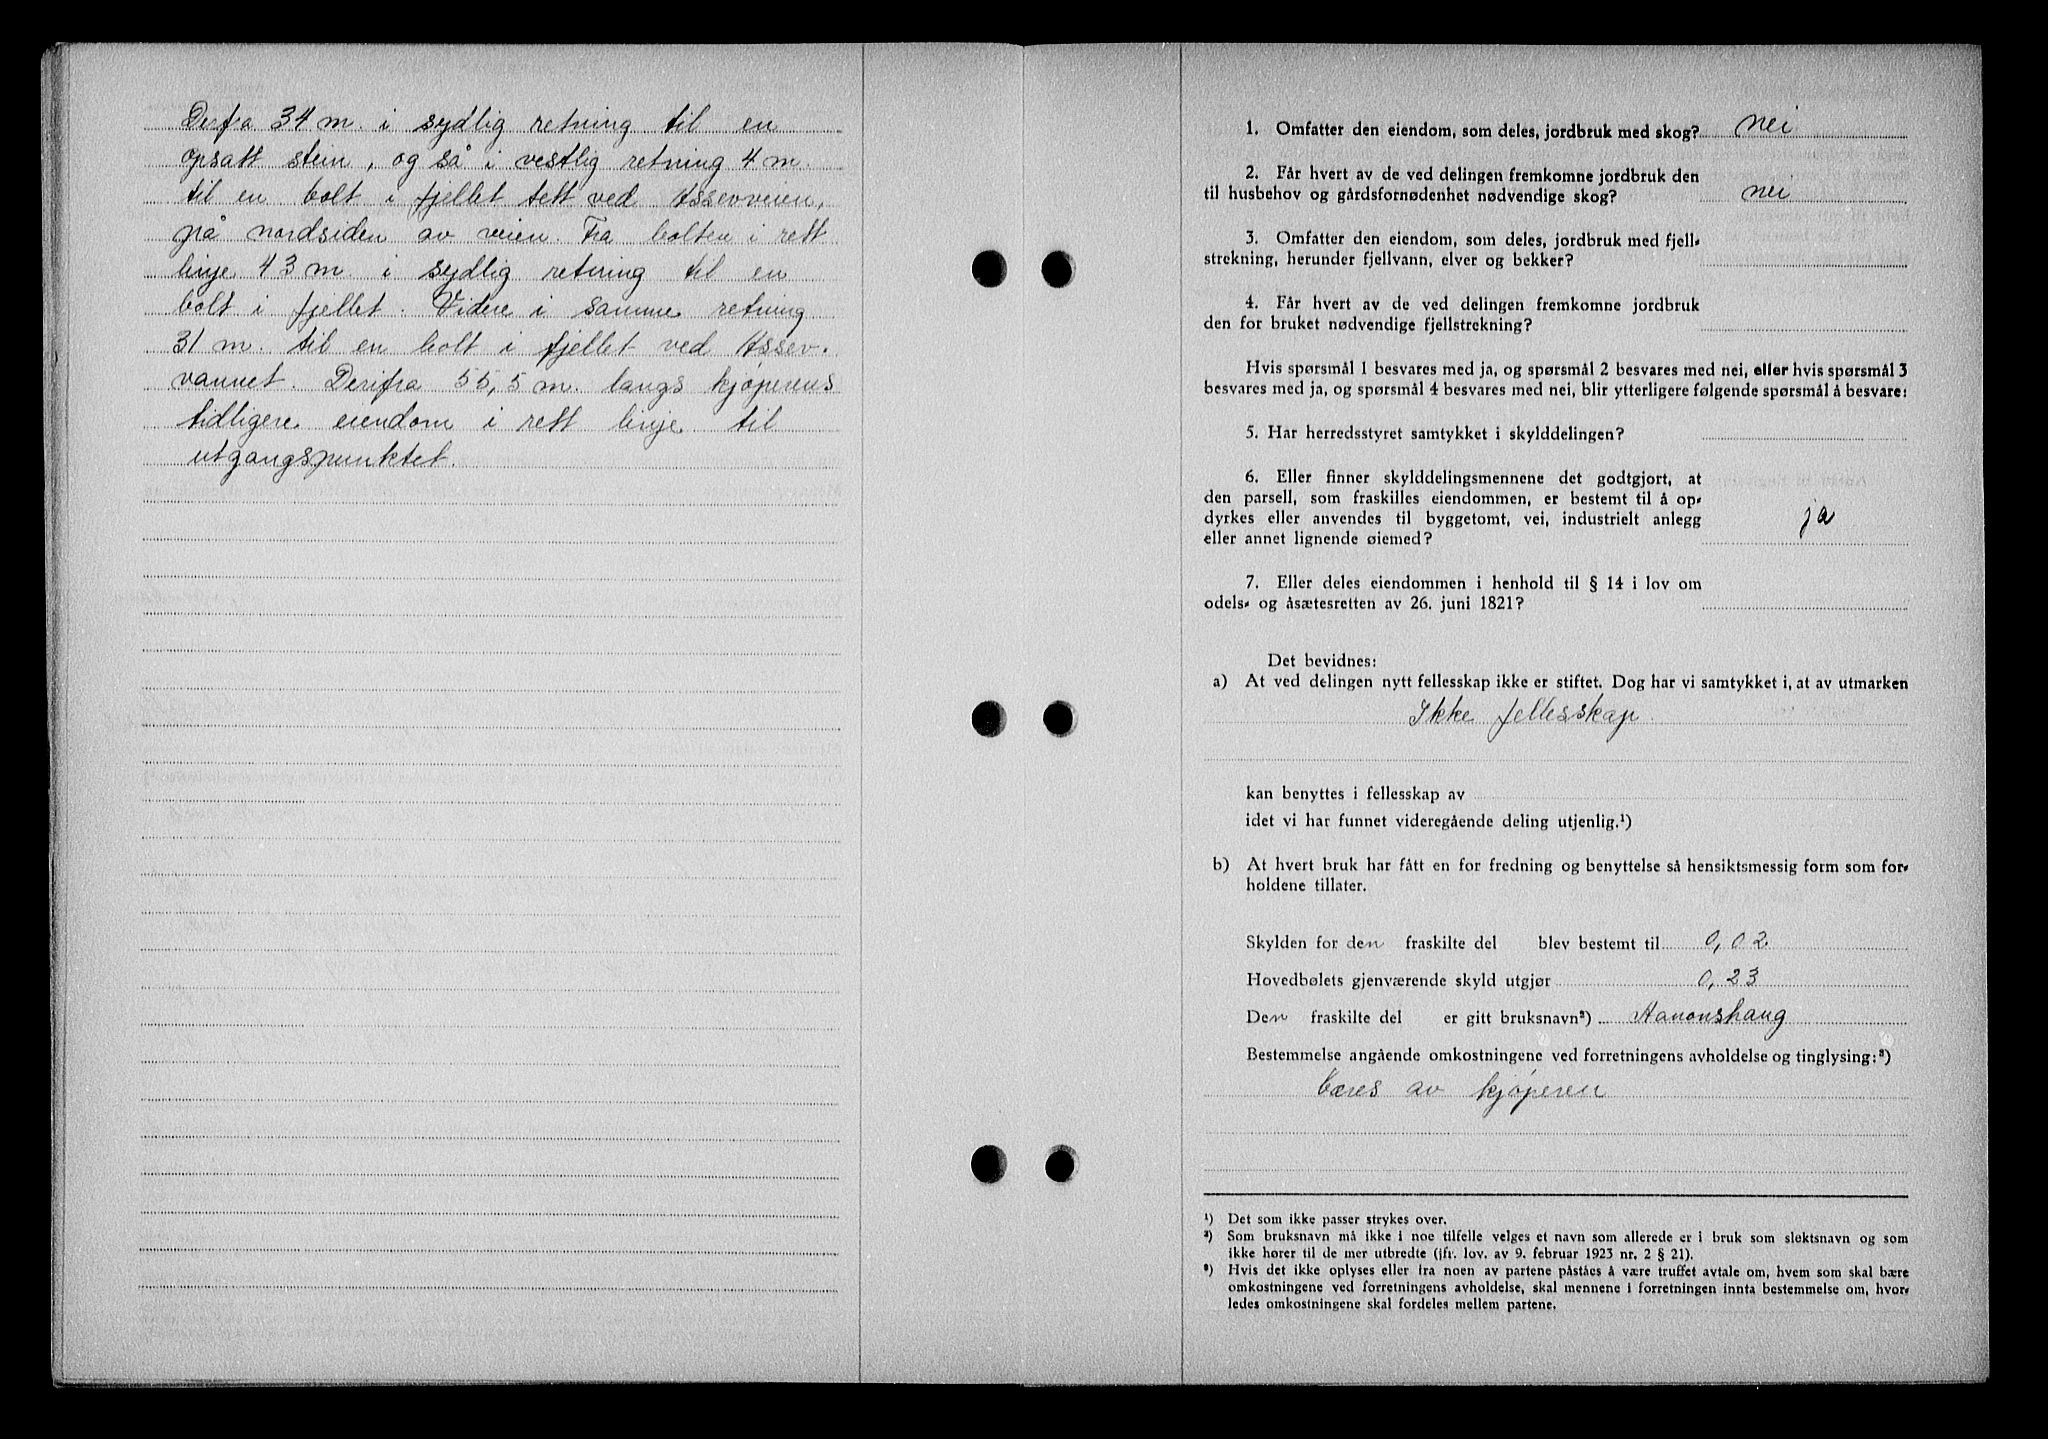 Derfra 34 m. i sydlig retning til en
opsatt stein, og så i vestlig retning 4 m.
til en bolt i fjellet tett ved Assevveien,
på nordsiden av veien. Fra bolten i rett
linje 43 m. i sydlig retning til en
bolt i fjellet. Videre i samme retning
31 m. til en bolt i fjellet ved Assev-
vannet. Derifra 55,5 m. langs kjøperens
tidligere eiendom i rett linje til
utgangspunktet.
1. Omfatter den eiendom, som deles, jordbruk med skog? nei
2. Får hvert av de ved delingen fremkomne jordbruk den
til husbehov og gårdsfornødenhet nødvendige skog? nei
3. Omfatter den eiendom, som deles, jordbruk med fjell-
strekning, herunder fjellvann, elver og bekker?
4. Får hvert av de ved delingen fremkomne jordbruk
den for bruket nødvendige fjellstrekning?
Hvis spørsmål 1 besvares med ja, og spørsmål 2 besvares med nei, eller hvis spørsmål 3
besvares med ja, og spørsmål 4 besvares med nei, blir ytterligere følgende spørsmål å besvare:
5. Har herredsstyret samtykket i skylddelingen?
6. Eller finner skylddelingsmennene det godtgjort, at
den parsell, som fraskilles eiendommen, er bestemt til å op-
dyrkes eller anvendes til byggetomt, vei, industrielt anlegg ja
eller annet lignende øiemed?
7. Eller deles eiendommen i henhold til § 14 i lov om
odels- og åsætesretten av 26. juni 1821?
Det bevidnes:
a) At ved delingen nytt fellesskap ikke er stiftet. Dog har vi samtykket i, at av utmarken
Ikke fellesskap.
kan benyttes i fellesskap av
idet vi har funnet videregående deling utjenlig.¹)
b) At hvert bruk har fått en for fredning og benyttelse så hensiktsmessig form som for-
holdene tillater.
Skylden for den fraskilte del blev bestemt til 0,02
Hovedbølets gjenværende skyld utgjør 0,23
Den fraskilte del er gitt bruksnavn²) Aanonshaug
Bestemmelse angående omkostningene ved forretningens avholdelse og tinglysing:³)
bæres av kjøperen
¹) Det som ikke passer strykes over.
²) Som bruksnavn må ikke i noe tilfelle velges et navn som allerede er i bruk som slektsnavn og som
ikke hører til de mer utbredte (jfr. lov. av 9. februar 1923 nr. 2 § 21).
³) Hvis det ikke oplyses eller fra noen av partene påståes å være truffet avtale om, hvem som skal bære
omkostningene ved forretningens avholdelse, skal mennene i forretningen innta bestemmelse om, hvor-
ledes omkostningene skal fordeles mellem partene.